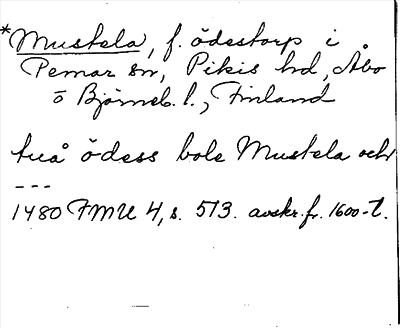 *Mustela, f. ödestorp i
Pemar sn, Pikis hd, Åbo
o Björneb. l., Finland
tuå ödess bole Mustela och
---
1480 FMU 4, s. 573. avskr. fr. 1600-t.